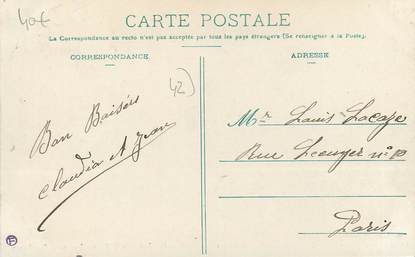 40€
CARTE POSTALE
La Correspondance au recto n'est pas acceptée par tous les pays étrangers (Se renseigner à la Poste).
CORRESPONDANCE
ADRESSE
42
Bon Baisers
Claudia et Jean
Mr Louis Lacaze
Rue n°
Paris
F